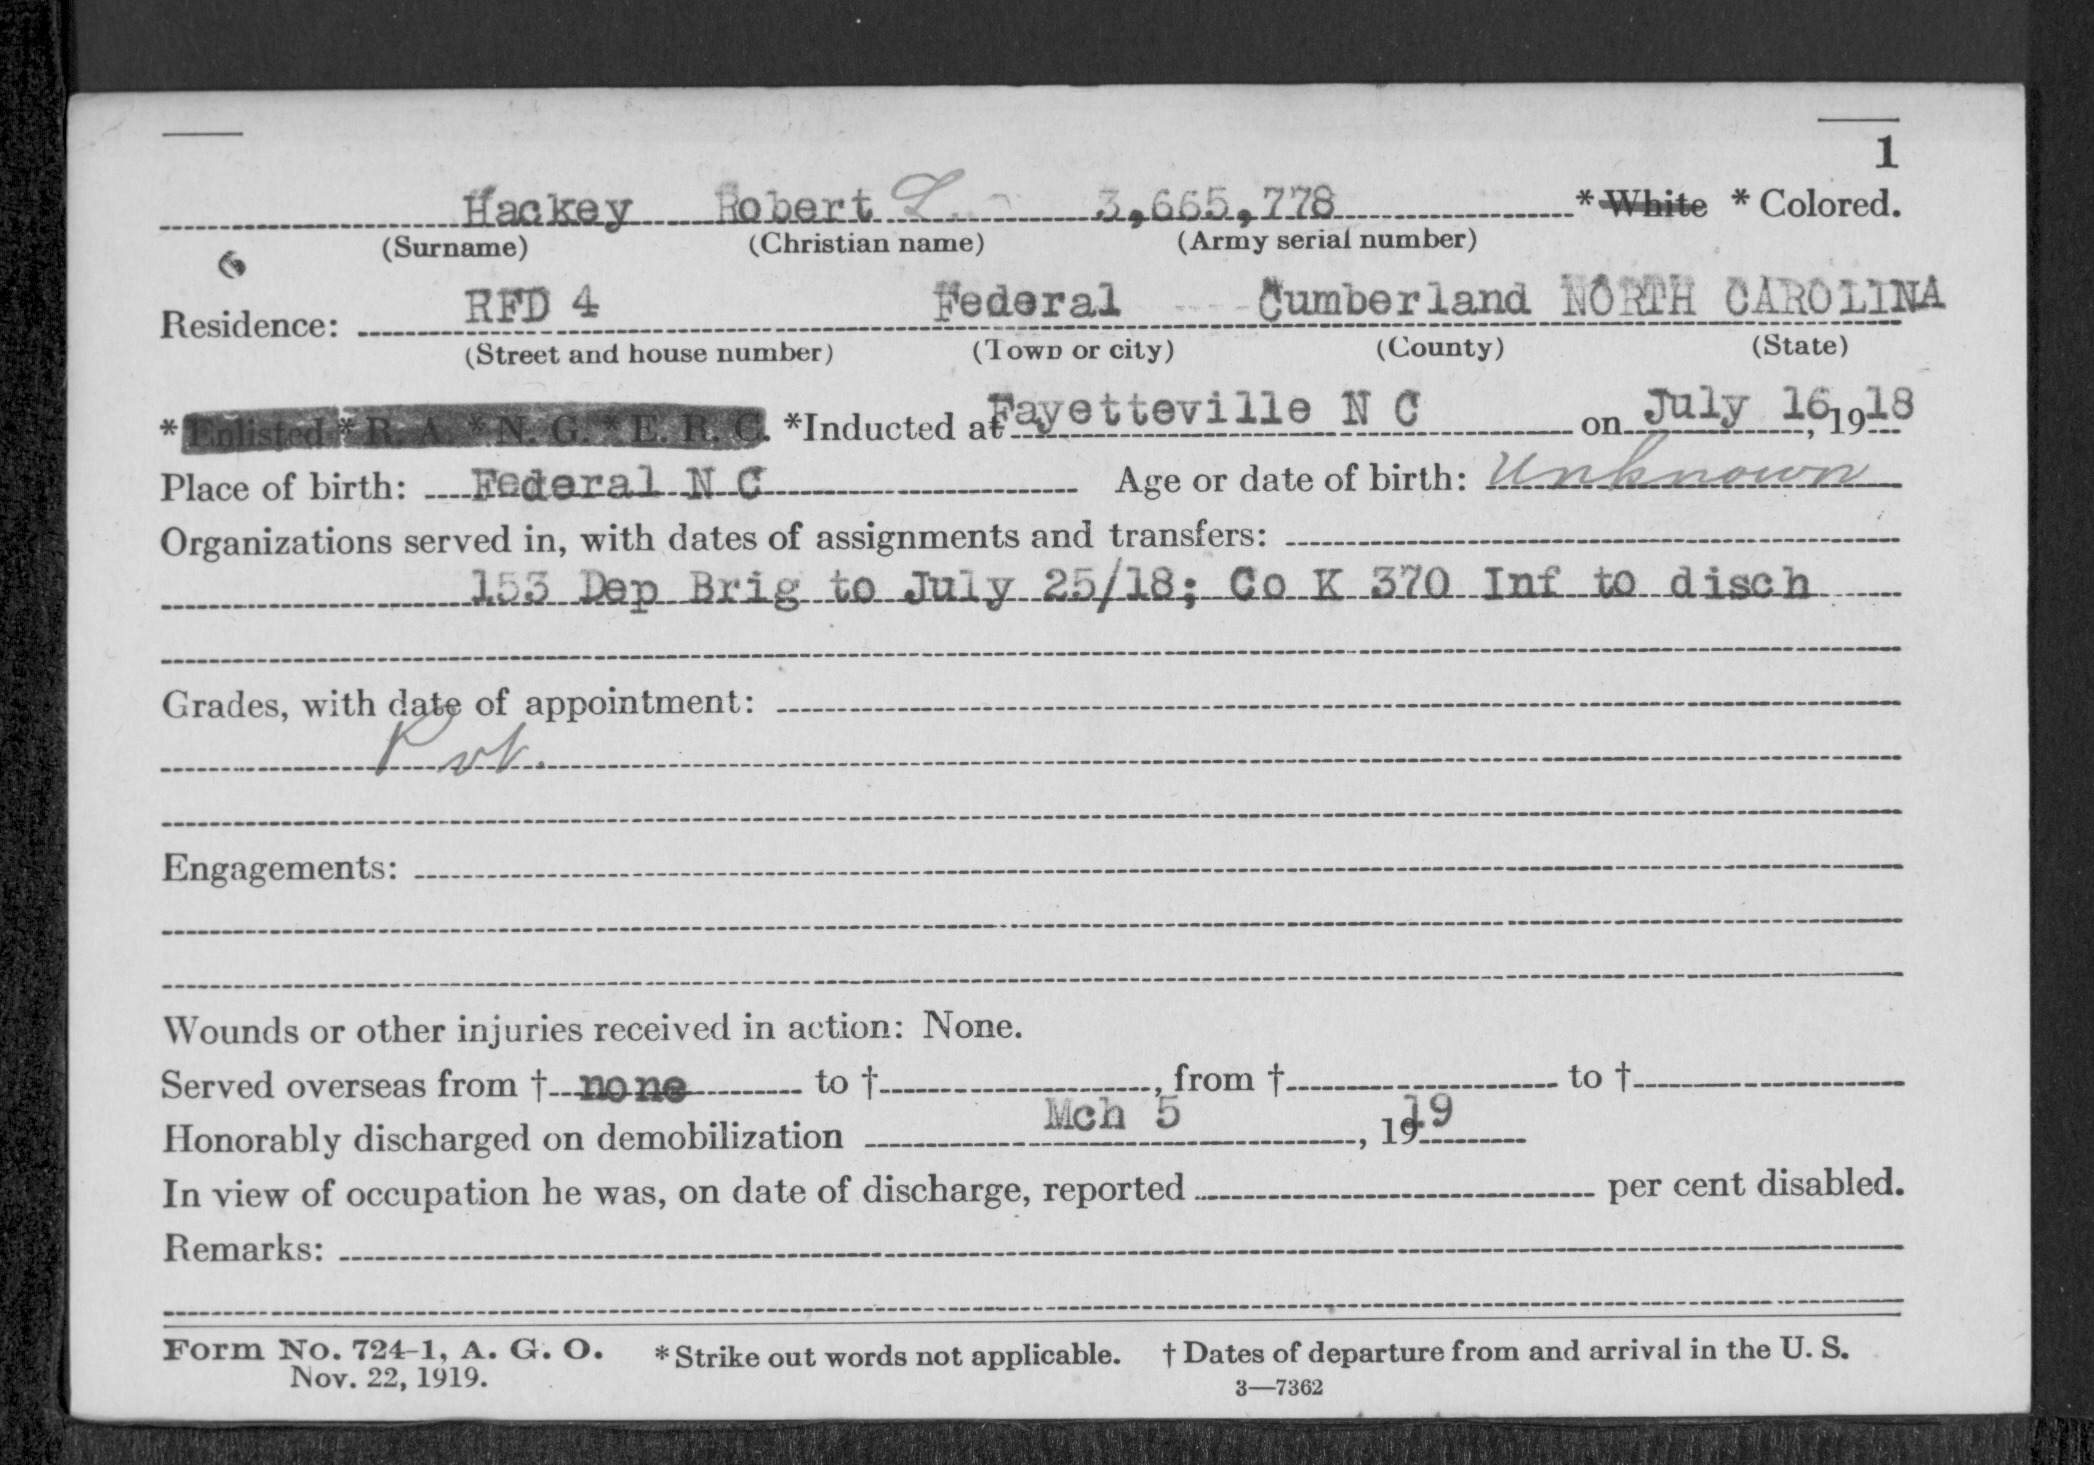 1
Hackey Robert L. 3,665,778 * White * Colored.
(Surname) (Christian name) (Army serial number)
Residence: RFD 4 Federal Cumberland NORTH CAROLINA
(Street and house number) (Town or city) (County) (State)
* Enlisted * R. A. * N. G. * E. R. C. *Inducted at Fayetteville N C on July 16, 1918
Place of birth: Federal N C Age or date of birth: Unknown
Organizations served in, with dates of assignments and transfers:
153 Dep Brig to July 25/18; Co K 370 Inf to disch
Grades, with date of appointment:
Pvt.
Engagements:
Wounds or other injuries received in action: None.
Served overseas from † none to † , from † to †
Honorably discharged on demobilization Mch 5 , 1919
In view of occupation he was, on date of discharge, reported per cent disabled.
Remarks:
Form No. 724-1, A. G. O. * Strike out words not applicable. † Dates of departure from and arrival in the U. S.
Nov. 22, 1919. 3—7362